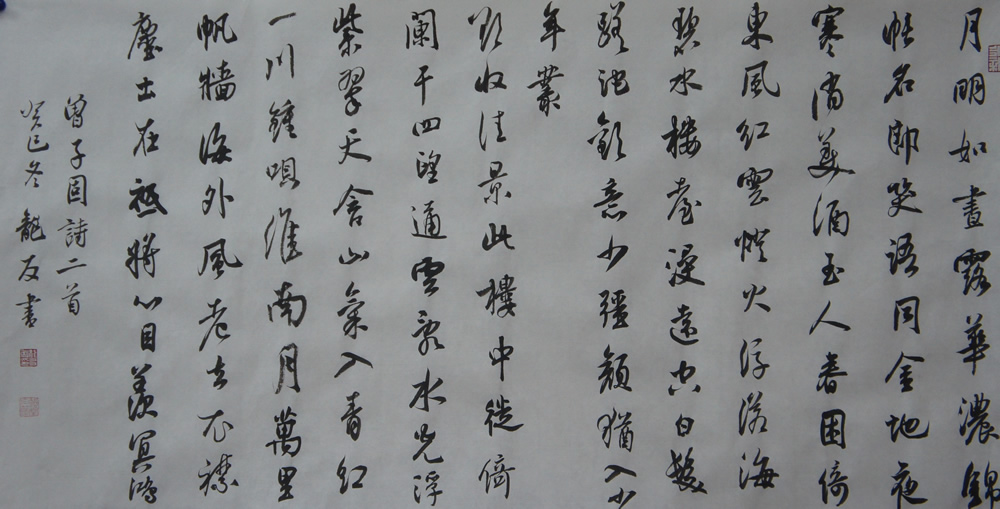 月明如晝露華濃錦
帳名郎笑語同金地夜
寒消美酒玉人春困倚
東風紅雲燈火浮滄海
碧水樓臺浸遠空白髮
蹉跎歡意少彊顏猶入少
年叢
欲收佳景此樓中徙倚
闌干四望通雲亂水光浮
紫翠天含山氣入青紅
一川鍾唄淮南月萬里
帆檣海外風老去衣襟
塵土在祗將心目羨冥鴻
曾子固詩二首
癸巳冬龍友書